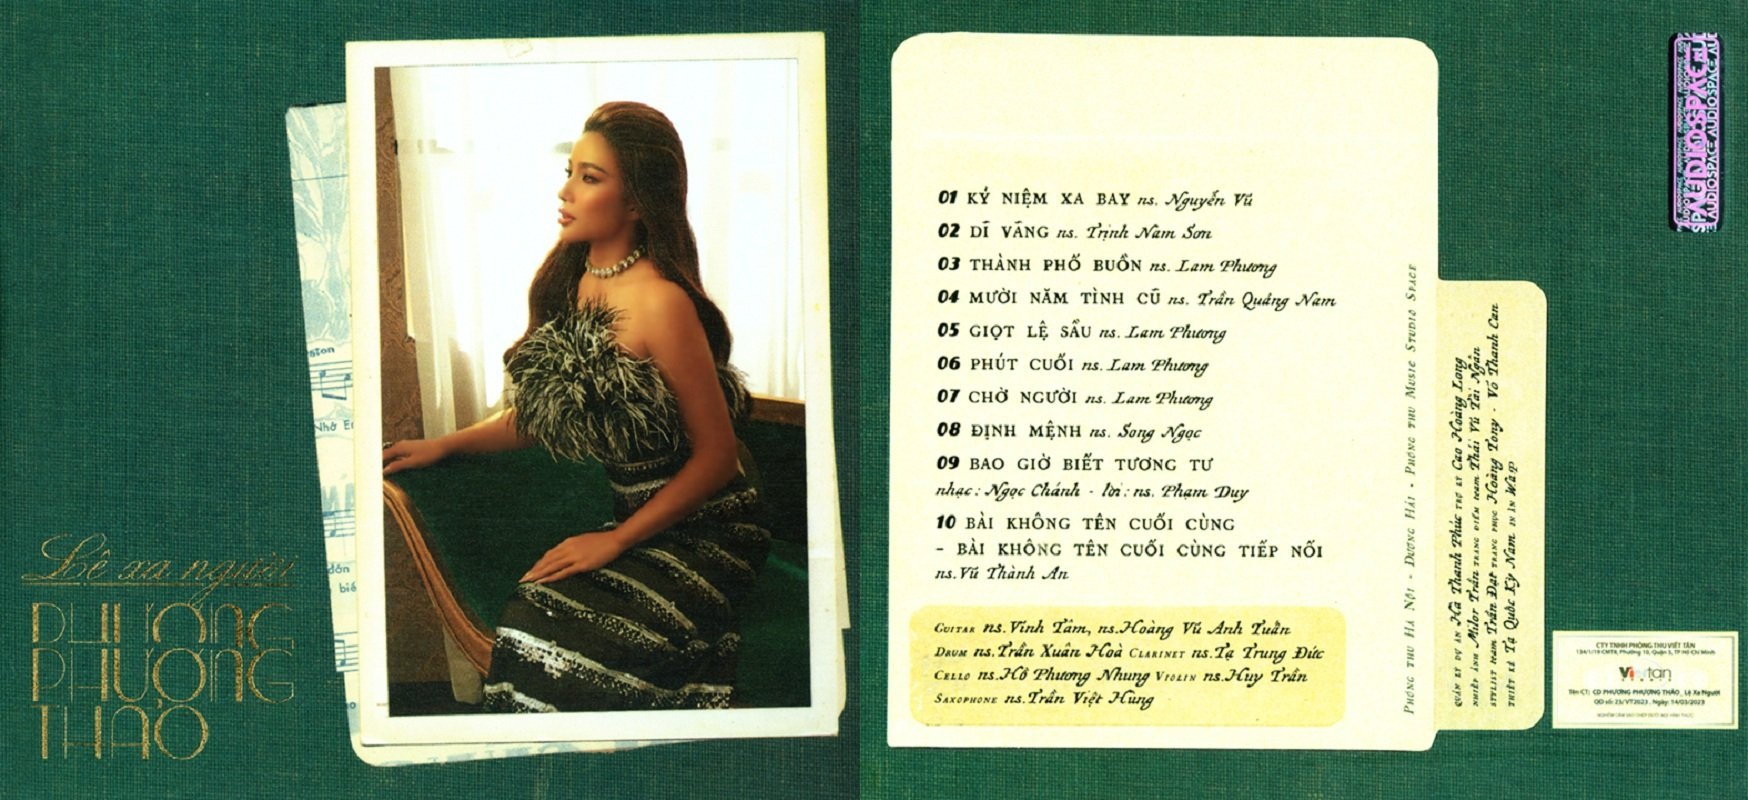 Lệ xa người
PHƯƠNG
PHƯỢNG
THẢO
Nhớ E
01 KỶ NIỆM XA BAY ns. Nguyễn Vũ
02 DĨ VÃNG ns. Trịnh Nam Sơn
03 THÀNH PHỐ BUỒN ns. Lam Phương
04 MƯỜI NĂM TÌNH CŨ ns. Trần Quảng Nam
05 GIỌT LỆ SẦU ns. Lam Phương
06 PHÚT CUỐI ns. Lam Phương
07 CHỜ NGƯỜI ns. Lam Phương
08 ĐỊNH MỆNH ns. Song Ngọc
09 BAO GIỜ BIẾT TƯƠNG TƯ
nhạc: Ngọc Chánh - lời: ns. Phạm Duy
10 BÀI KHÔNG TÊN CUỐI CÙNG
- BÀI KHÔNG TÊN CUỐI CÙNG TIẾP NỐI
ns. Vũ Thành An
GUITAR ns. Vĩnh Tâm, ns. Hoàng Vũ Anh Tuấn
DRUM ns. Trần Xuân Hoà CLARINET ns. Tạ Trung Đức
CELLO ns. Hồ Phương Nhung VIOLIN ns. Huy Trần
SAXOPHONE ns. Trần Việt Hùng
PHÒNG THU HÀ NỘI - DƯƠNG HẢI - PHÒNG THU MUSIC STUDIO SPACE
QUẢN LÝ DỰ ÁN Hà Thanh Phúc TRỢ LÝ Cao Hoàng Long
NHIẾP ẢNH Milor Trần TRANG ĐIỂM team Thái Vũ Tài Ngân
STYLIST Nam Trần Đạt TRANG PHỤC Hoàng Tony - Võ Thanh Can
THIẾT KẾ Tạ Quốc Kỳ Nam IN ẤN W.A.P
AUDIOSPACE
CTY TNHH PHÒNG THU VIẾT TÂN
Viettan
Tên CT: CD PHƯƠNG PHƯỢNG THẢO_ Lệ Xa Người
QĐ số: 23/VT2023, Ngày: 14/03/2023